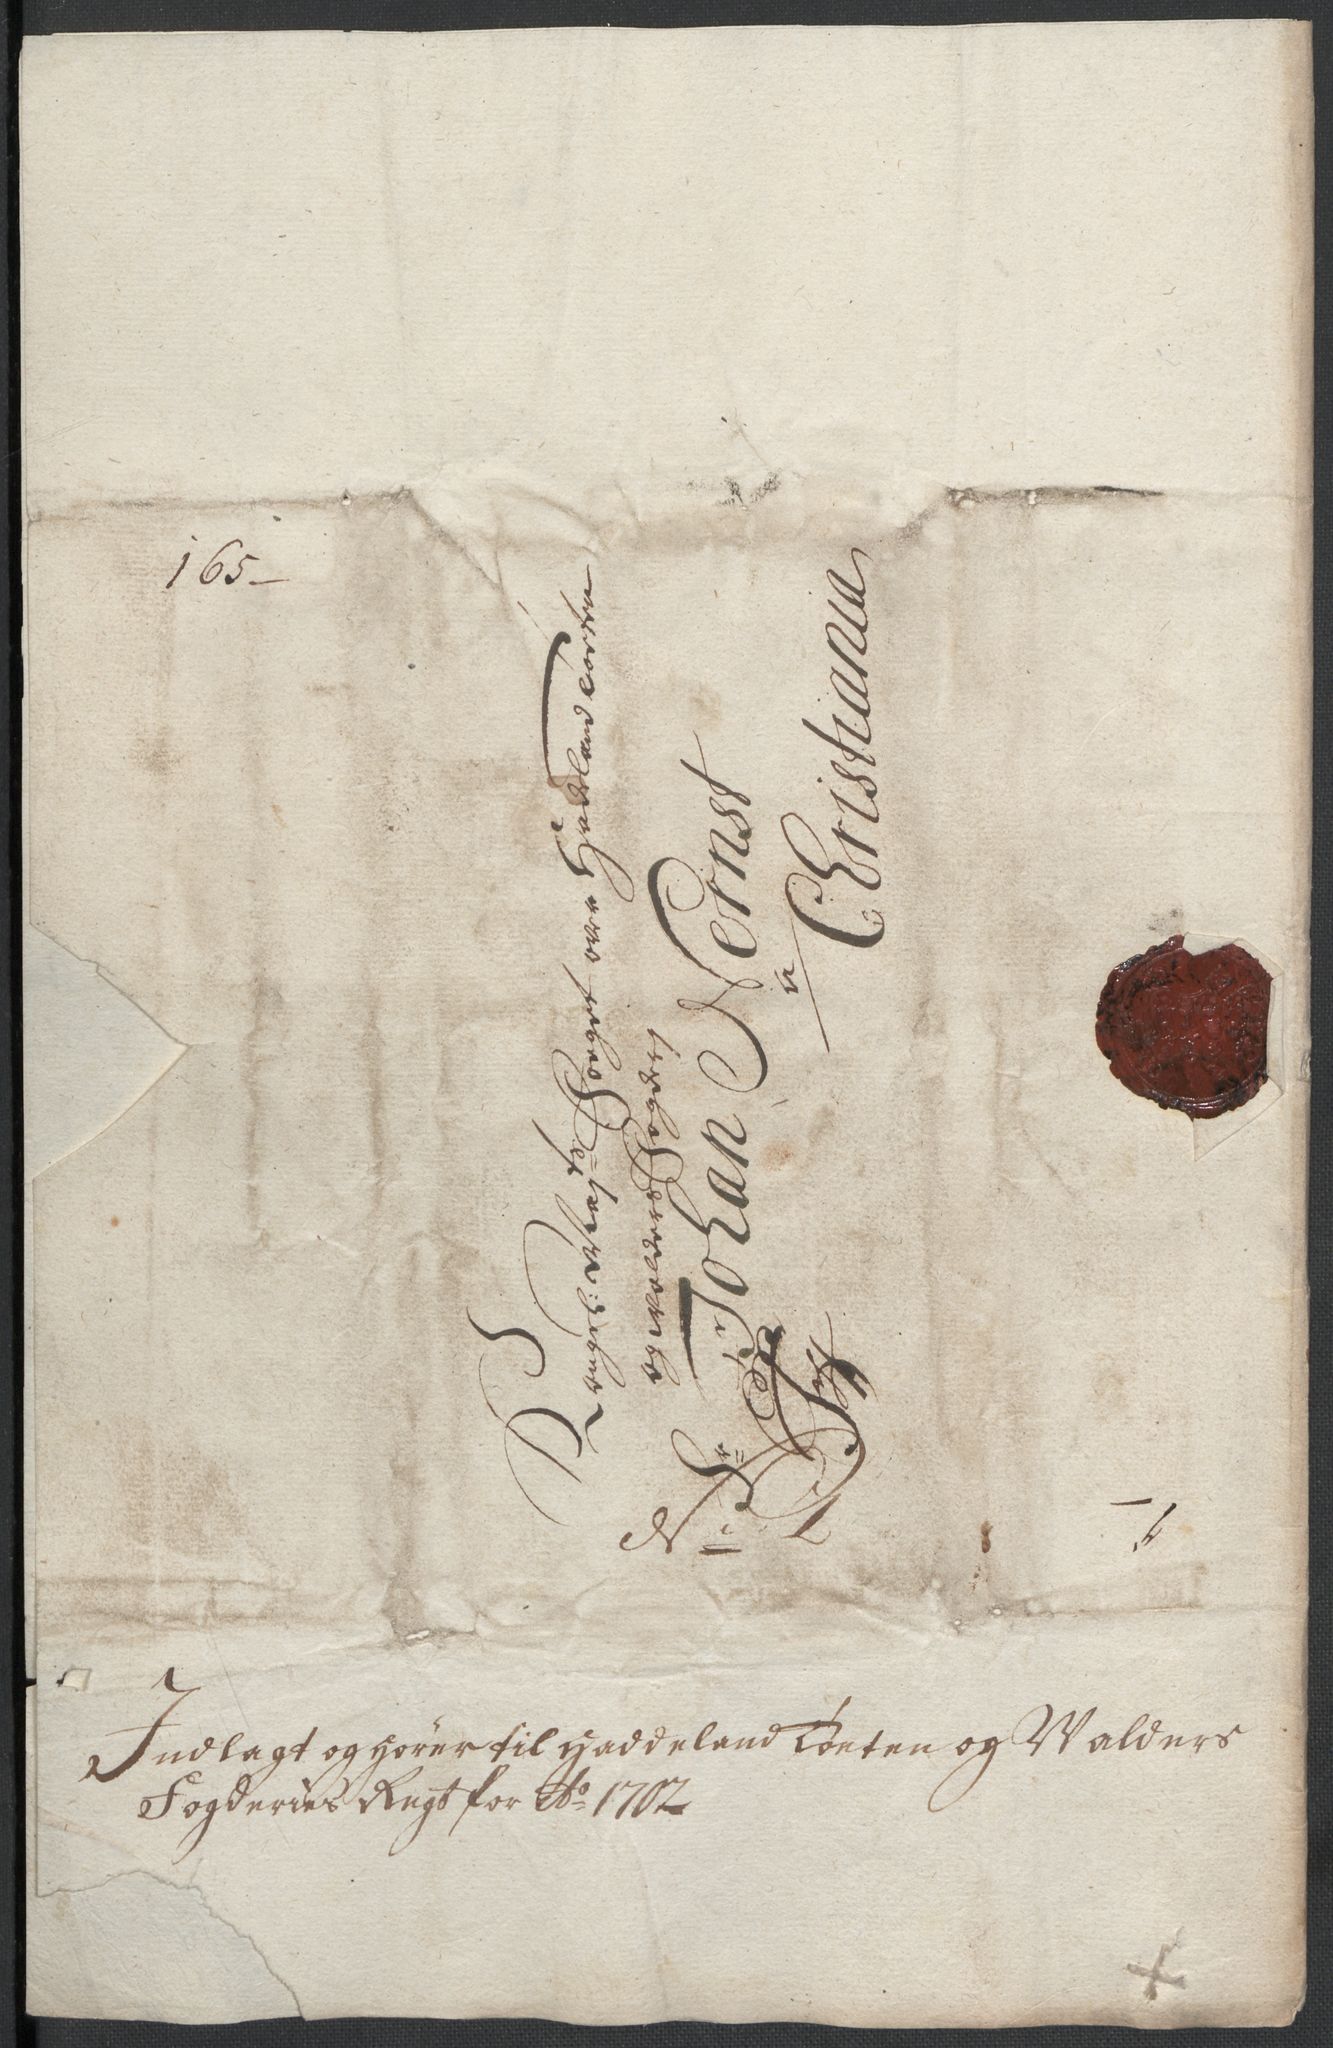 165
Kongl: Mayts Foeget over Hadeland Torten
og Walders Fogderj
Sr Johan Nernst
a
Cristiania
Indlagt og hörer til Haddeland Toeten og Walders
Fogderies Regt for Ao 1702